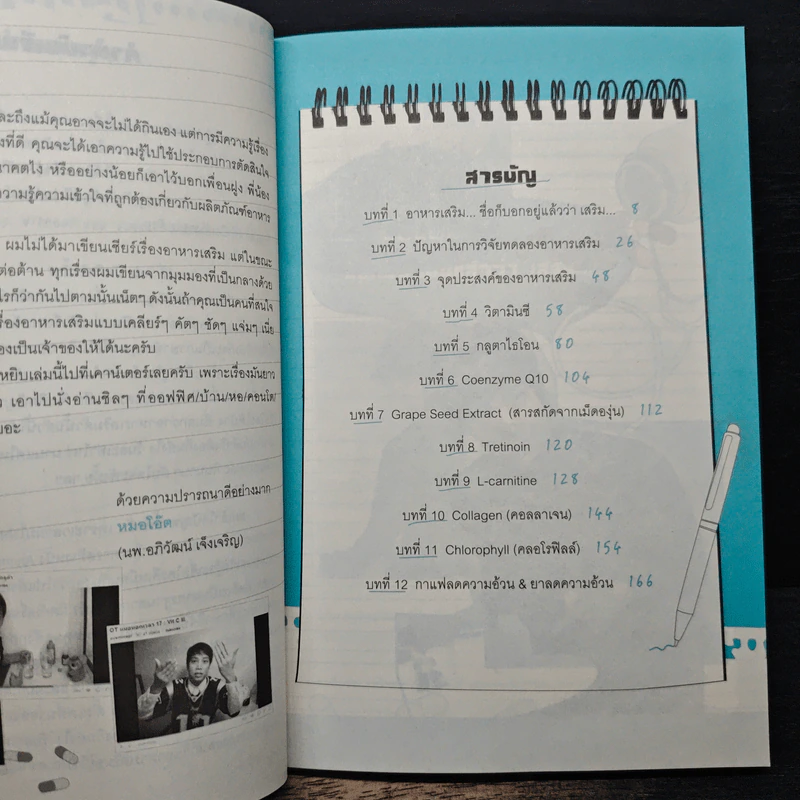 ละถึงแม้คุณอาจจะไม่ได้กินเอง แต่การมีความรู้เรื่อง
งที่ดี คุณจะได้เอาความรู้ไปใช้ประกอบการตัดสินใจ
าคตไง หรืออย่างน้อยก็เอาไว้บอกเพื่อนฝูง พี่น้อง
วามรู้ความเข้าใจที่ถูกต้องเกี่ยวกับผลิตภัณฑ์อาหาร
ผมไม่ได้มาเขียนเชียร์เรื่องอาหารเสริม แต่ในขณะ
ต่อต้าน ทุกเรื่องผมเขียนจากมุมมองที่เป็นกลางด้วย
ไรก็ว่ากันไปตามนั้นเน็ตๆ ดังนั้นถ้าคุณเป็นคนที่สนใจ
รื่องอาหารเสริมแบบเคลียร์ๆ คัตๆ ชัดๆ แจ่มๆ เนี่ย
องเป็นเจ้าของให้ได้นะครับ
หยิบเล่มนี้ไปที่เคาน์เตอร์เลยครับ เพราะเรื่องมันยาว
เอาไปนั่งอ่านชิลๆ ที่ออฟฟิศ/บ้าน/หอ/คอนโด/
ด้วยความปรารถนาดีอย่างมาก
หมอโอ๊ต
(นพ.อภิวัฒน์ เจ็งเจริญ)
สารบัญ
บทที่ 1 อาหารเสริม... ชื่อก็บอกอยู่แล้วว่า เสริม... 8
บทที่ 2 ปัญหาในการวิจัยทดลองอาหารเสริม 26
บทที่ 3 จุดประสงค์ของอาหารเสริม 48
บทที่ 4 วิตามินซี 58
บทที่ 5 กลูตาไธโอน 80
บทที่ 6 Coenzyme Q10 104
บทที่ 7 Grape Seed Extract (สารสกัดจากเม็ดองุ่น) 112
บทที่ 8 Tretinoin 120
บทที่ 9 L-carnitine 128
บทที่ 10 Collagen (คอลลาเจน) 144
บทที่ 11 Chlorophyll (คลอโรฟิลล์) 154
บทที่ 12 กาแฟลดความอ้วน & ยาลดความอ้วน 166